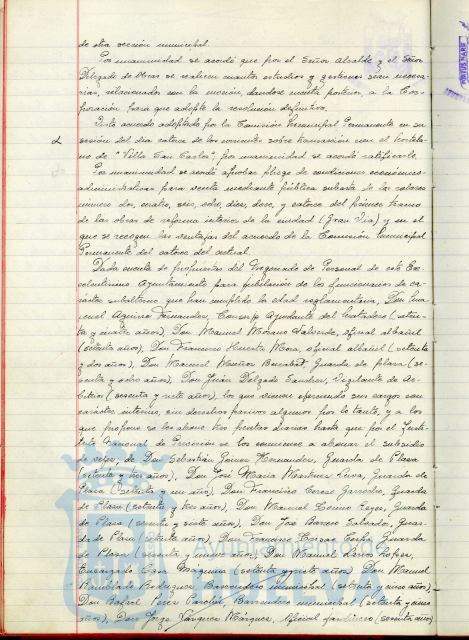 de otra sección municipal.
Por unanimidad se acordó que por el Señor Alcalde y el Señor
Delegado de Obras se realicen cuantos estudios y gestiones sean necesa-
rias, relacionados con la moción, dandose cuenta posterior, a la Cor-
poración para que adopte la resolución definitiva.
Visto acuerdo adoptado por la Comisión Municipal Permanente en su
sesión del dia catorce de los corrientes sobre transacción con el hortela-
no de "Villa San Carlos", por unanimidad se acordó ratificarlo.
Por unanimidad se acordó aprobar pliego de condiciones económico-
administrativas para venta mediante pública subasta de los solares
número dos, cuatro, seis, ocho, diez, doce, y catorce del primer tramo
de las obras de reforma interior de la ciudad (Gran Via) y en el
que se recogen las ventajas del acuerdo de la Comisión Municipal
Permanente del catorce del actual.
Dada cuenta de propuestas del Negociado de Personal de este Ex-
celentísimo Ayuntamiento para jubilación de los funcionarios de ca-
rácter subalterno que han cumplido la edad reglamentaria, Don Ma-
nuel Aguirre Fernandez, Conserje Ayudante del Matadero (seten-
ta y cuatro años), Don Manuel Moreno Valverde, oficial albañil
(setenta años), Don Francisco Huerta Mora, oficial albañil (setenta
y dos años), Don Manuel Benabat, Guarda de plaza (se-
senta y ocho años), Don Juan Delgado Sanchez, Vigilante de Ar-
bitrios (sesenta y siete años), los que vienen ejerciendo sus cargos con
carácter interino, sin derechos pasivos algunos por lo tanto, y a los
que propone se les abone tres pesetas diarias hasta que por el Insti-
tuto Nacional de Previsión se les comience a abonar el subsidio
de vejez, de Don Sebastian Gomez Hernandez, Guarda de Plaza
(setenta y tres años), Don José Maria Martinez Leiva, Guarda de
Plaza (setenta y un año), Don Francisco Garrocho, Guarda
de Plaza (setenta y tres años), Don Manuel Reyes, Guarda
de Plaza (sesenta y siete años), Don José Barrera Salvador, Guar-
da de Plaza (setenta años), Don Francisco Guarda
de Plaza (sesenta y nueve años), Don Manuel Larios Lopez,
Encargado Casa Maquina (setenta y siete años), Don Manuel
Rodriguez, Barrendero municipal (setenta y cinco años),
Don Rafael Perez Barrendero municipal (setenta y cinco
años), Don Jorge Vazquez Marquez, Oficial jardinero (sesenta años)